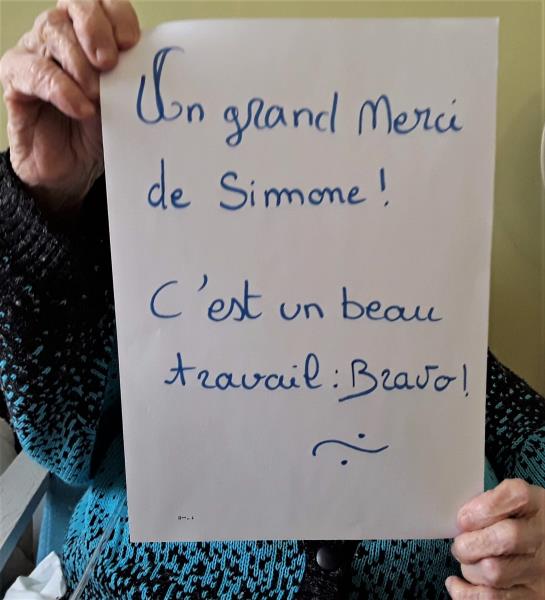 Un grand Merci
de Simone !
C'est un beau
travail : Bravo !